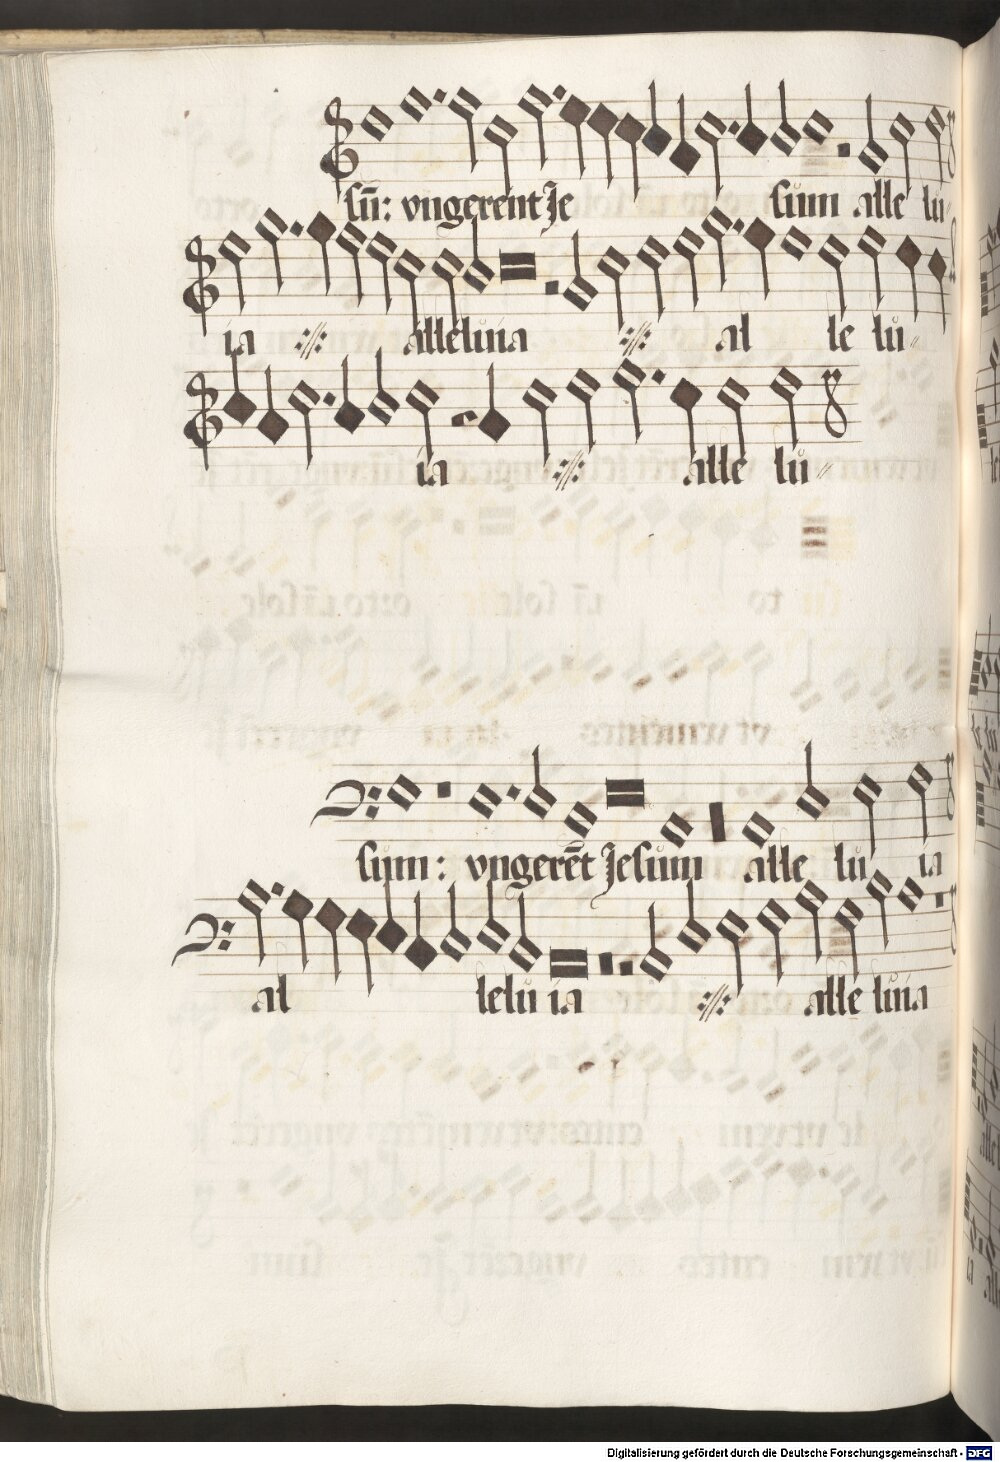 sū: vngerent Je sum alle lu-
ia ://: alleluia ://: al le lu-
ia ://: alle lu-
sum: vngerēt Jesum alle lu ia
al lelu ia ://: alle luia
Digitalisierung gefördert durch die Deutsche Forschungsgemeinschaft - DFG